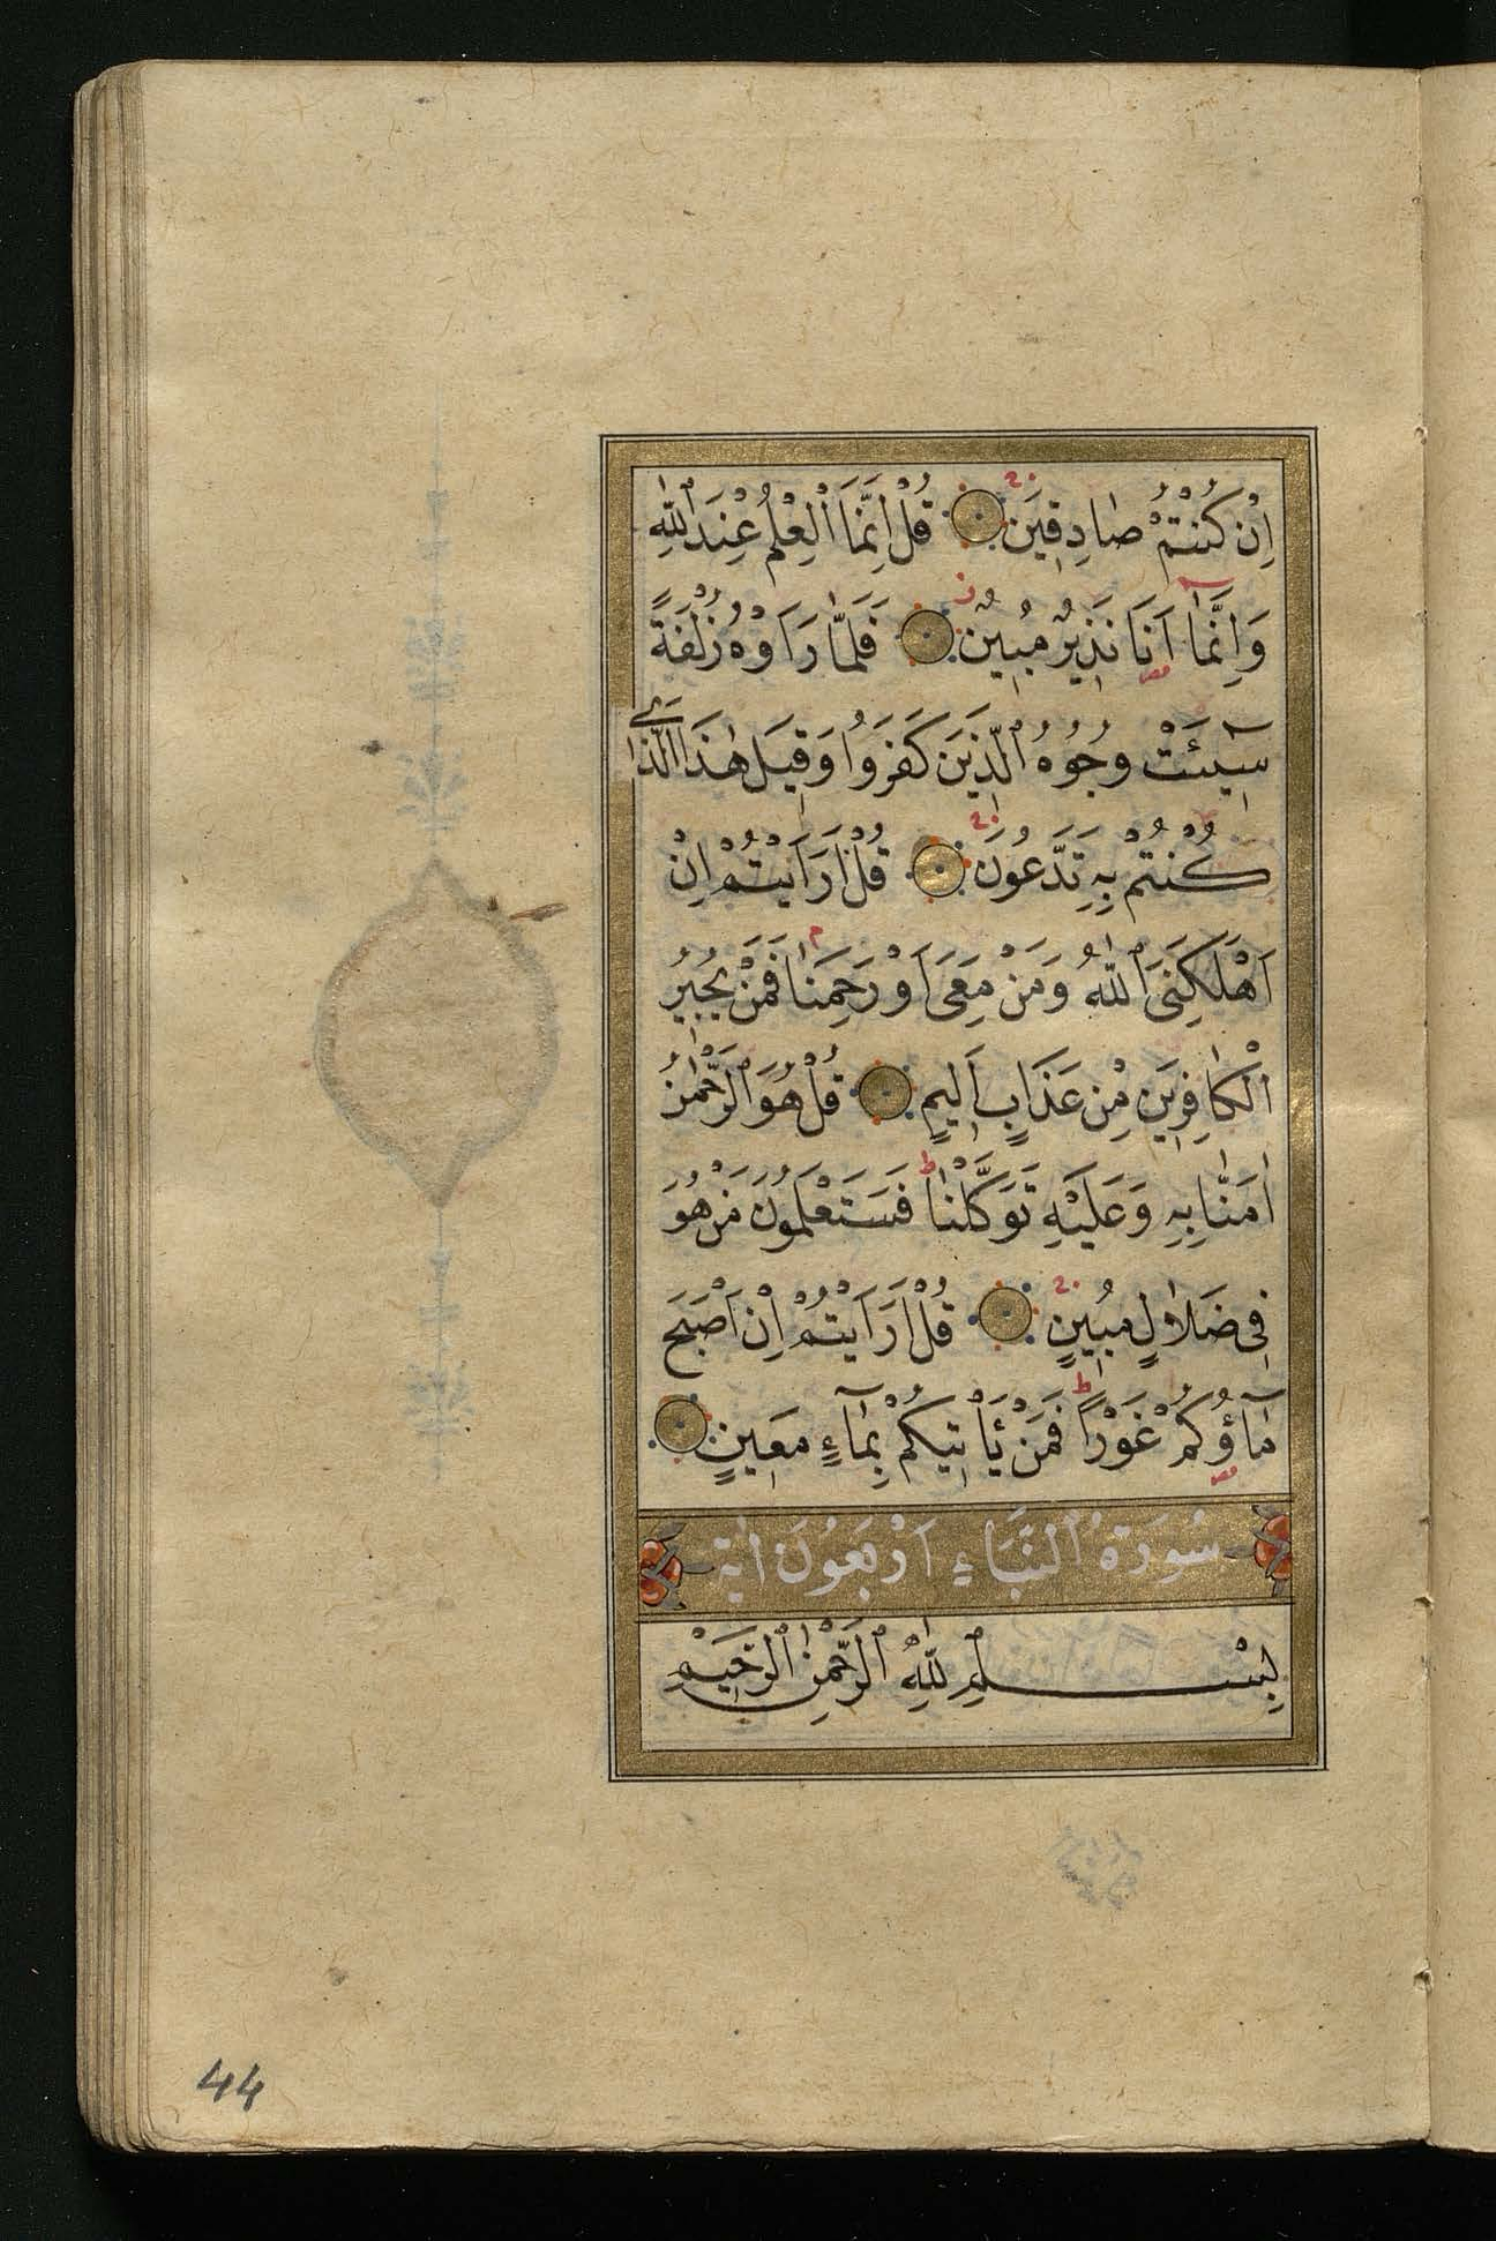 اِنْ كُنْتُمْ صَادِقِينَ قُلْ اِنَّمَا الْعِلْمُ عِنْدَ اللّٰهِ
وَاِنَّمَٓا اَنَا نَذِيرٌ مُبِينٌ فَلَمَّا رَاَوْهُ زُلْفَةً
سِٓيئَتْ وُجُوهُ الَّذِينَ كَفَرُوا وَقِيلَ هٰذَا الَّذِي
كُنْتُمْ بِهِ تَدَّعُونَ قُلْ اَرَاَيْتُمْ اِنْ
اَهْلَكَنِيَ اللّٰهُ وَمَنْ مَعِيَ اَوْ رَحِمَنَا فَمَنْ يُجِيرُ
الْكَافِرِينَ مِنْ عَذَابٍ اَلِيمٍ قُلْ هُوَ الرَّحْمٰنُ
اٰمَنَّا بِهِ وَعَلَيْهِ تَوَكَّلْنَا فَسَتَعْلَمُونَ مَنْ هُوَ
فِي ضَلَالٍ مُبِينٍ قُلْ اَرَاَيْتُمْ اِنْ اَصْبَحَ
مَٓاؤُكُمْ غَوْرًا فَمَنْ يَأْتِيكُمْ بِمَٓاءٍ مَعِينٍ
سُورَةُ النَّبَاءِ اَرْبَعُونَ اٰيَة
بِسْمِ اللّٰهِ الرَّحْمٰنِ الرَّحِيمِ
44